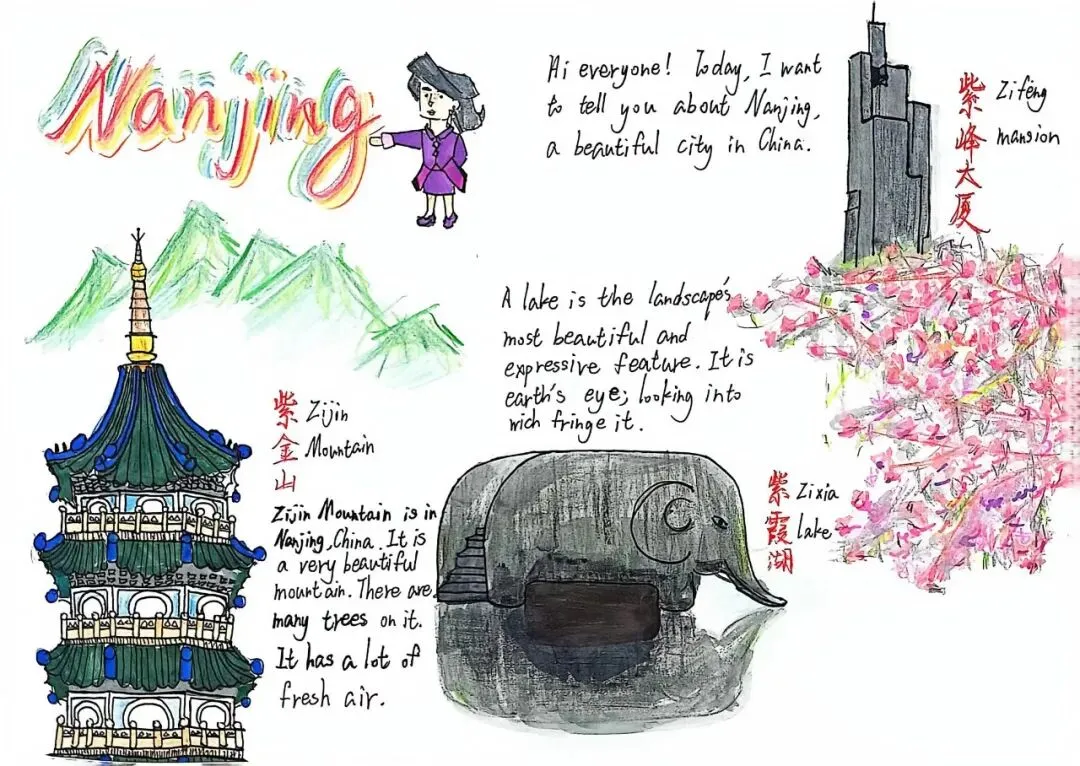 Nanjing
Hi everyone! Today, I want
to tell you about Nanjing,
a beautiful city in China.
紫峰大厦
Zifeng
mansion
A lake is the landscape's
most beautiful and
expressive feature. It is
earth's eye; looking into
fringe it.
紫金山
Zijin
Mountain
Zijin Mountain is in
Nanjing, China. It is
a very beautiful
mountain. There are
many trees on it.
It has a lot of
fresh air.
紫霞湖
Zixia
lake